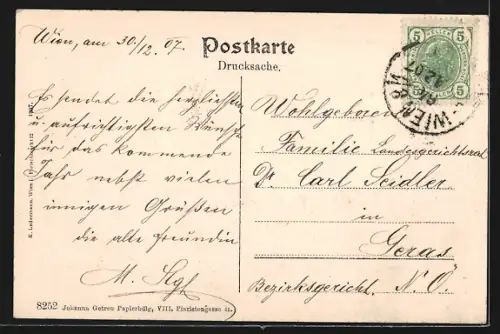 Wien, am 30/12.07.
Postkarte
Drucksache.
Es sendet die herzlichsten
u. aufrichtigsten Wünsche
für das kommende
Jahr nebst vielen
innigen Grüßen
die alte Freundin
M.
Wohlgeboren
Familie Landesgerichtsrat
Dr. Carl Seidler
in
Geras
Bezirksgericht N. Ö.
5 5
5 5
WIEN
K. Ledermann, Wien I.
8252 Johanna Getreu Papierhdlg., VIII. Piaristengasse 11.